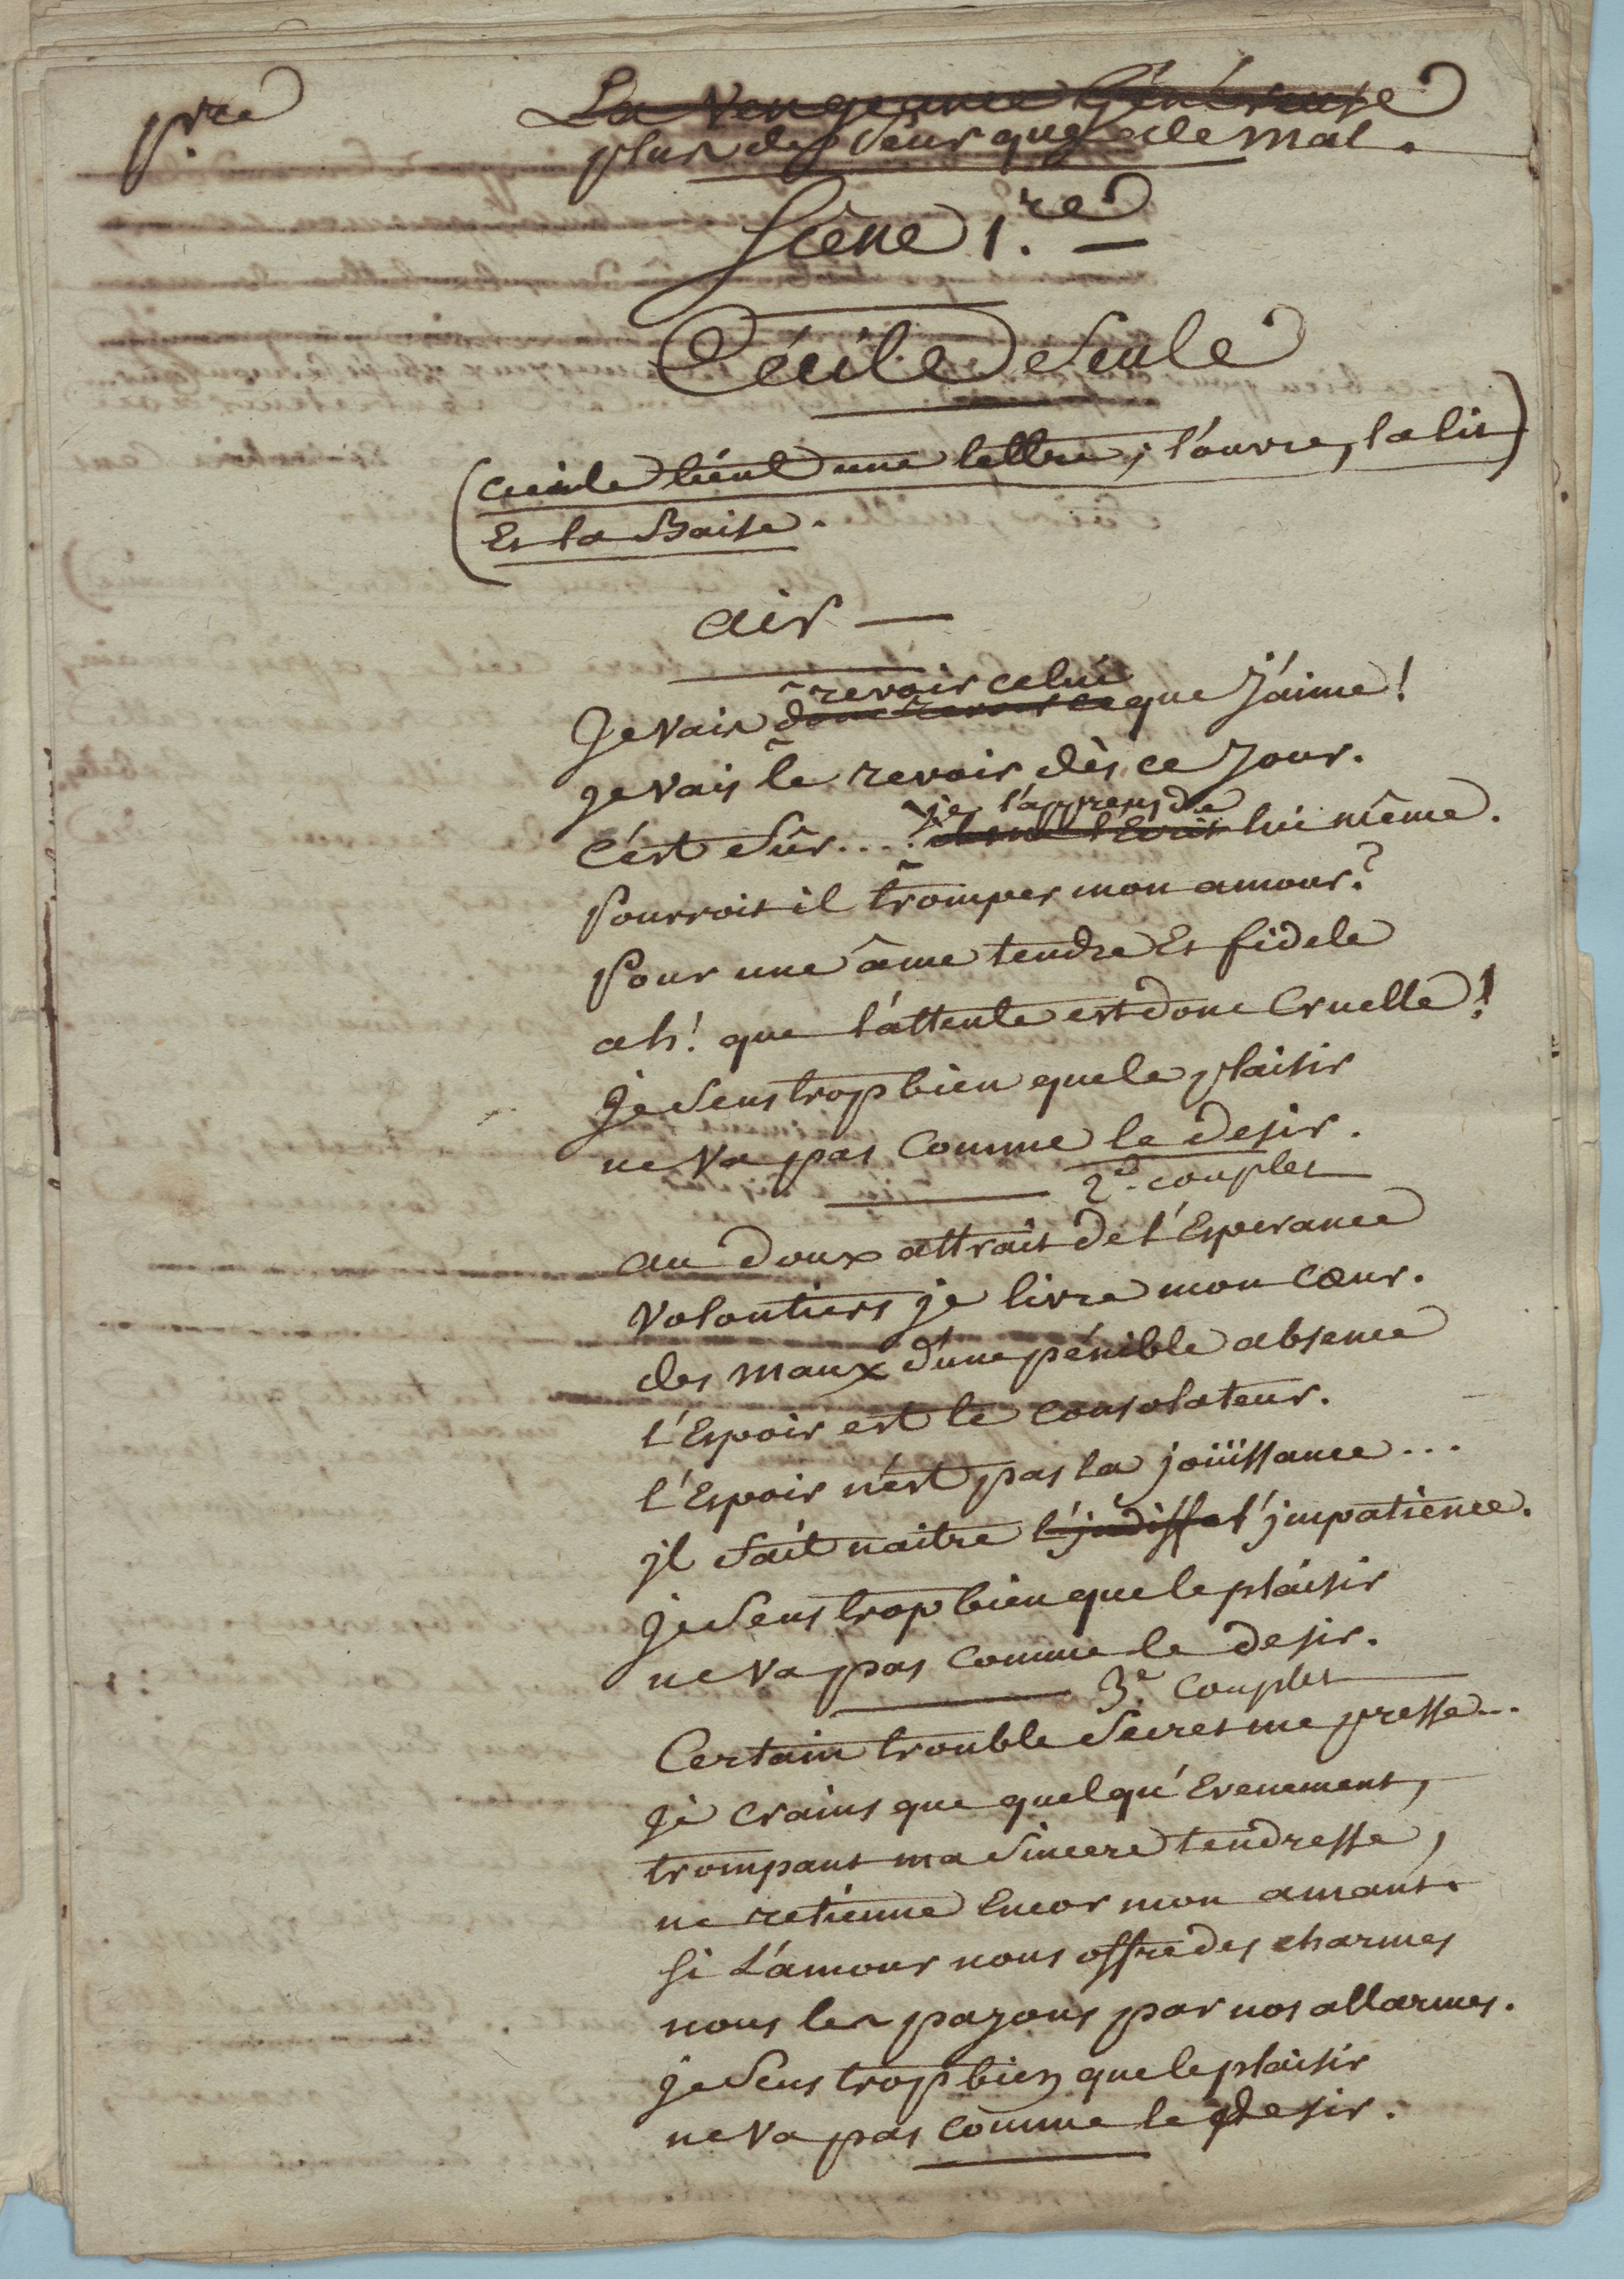 p.re
La Vengeance Généreuse
plus de peur que de mal.
Scène 1.re
Cécile Seule
(Cécile tient une lettre, l'ouvre, la lit
Et la Baise.
air —
revoir celui
Je vais donc revoir ce que J'aime!
je vais le revoir dès ce Jour.
je l'apprens de
C'est Sûr.... il me l'écrit lui même.
Pourroit il tromper mon amour?
Pour une âme tendre Et fidele
ah! que l'attente est donc Cruelle!
je Sens trop bien que le plaisir
ne Va pas Comme le desir.
2.d couplet
au doux attrait de l'Esperance
Volontiers je livre mon Cœur.
des maux d'une pénible absence
l'Espoir est le Consolateur.
l'Espoir n'est pas la joüissance...
jl Sait naitre l'jndiffe l'jmpatience.
je Sens trop bien que le plaisir
ne Va pas Comme le desir.
3.e Couplet
Certain trouble Secret me presse...
je Crains que quelqu'Evenement,
trompant ma Sincere tendresse,
ne retienne Encor mon amant.
Si L'amour nous offre des charmes
nous les payons par nos allarmes.
je Sens trop bien que le plaisir
ne Va pas Comme le desir.